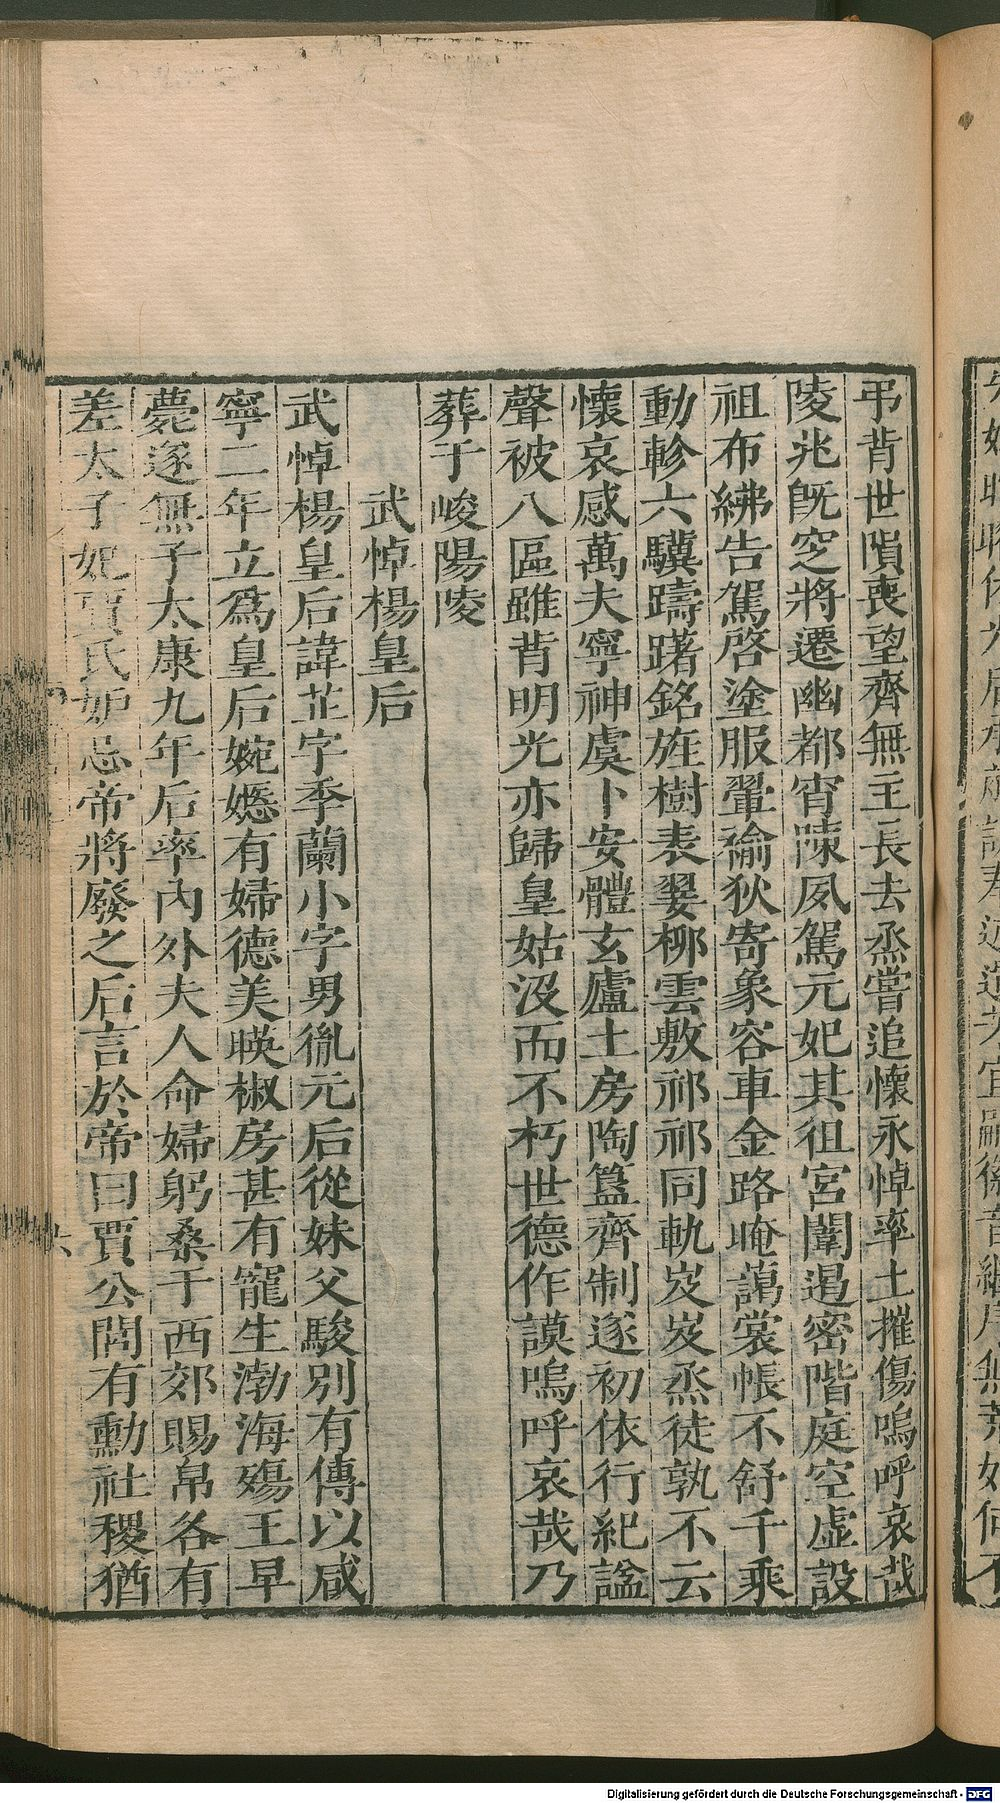 弔背世隕喪望齊無主長去烝嘗追懷永悼率土摧傷嗚呼哀哉
陵兆既窆將遷幽都宵陳夙駕元妃其徂宮闈遏密階庭空虛設
祖布紼告駕啓塗服翬褕狄寄象容車金路晻藹裳帳不舒千乘
動軫六驥躊躇銘旌樹表翣柳雲敷祁祁同軌岌岌烝徒孰不云
懷哀感萬夫寧神虞卜安體玄廬土房陶簋齊制遂初依行紀謚
聲被八區雖背明光亦歸皇姑沒而不朽世德作謨嗚呼哀哉乃
葬于峻陽陵
武悼楊皇后
武悼楊皇后諱芷字季蘭小字男胤元后從妹父駿別有傳以咸
寧二年立爲皇后婉嫕有婦德美暎椒房甚有寵生渤海殤王早
薨遂無子太康九年后率內外夫人命婦躬桑于西郊賜帛各有
差太子妃賈氏妒忌帝將廢之后言於帝曰賈公閭有勳社稷猶
六
Digitalisierung gefördert durch die Deutsche Forschungsgemeinschaft - DFG